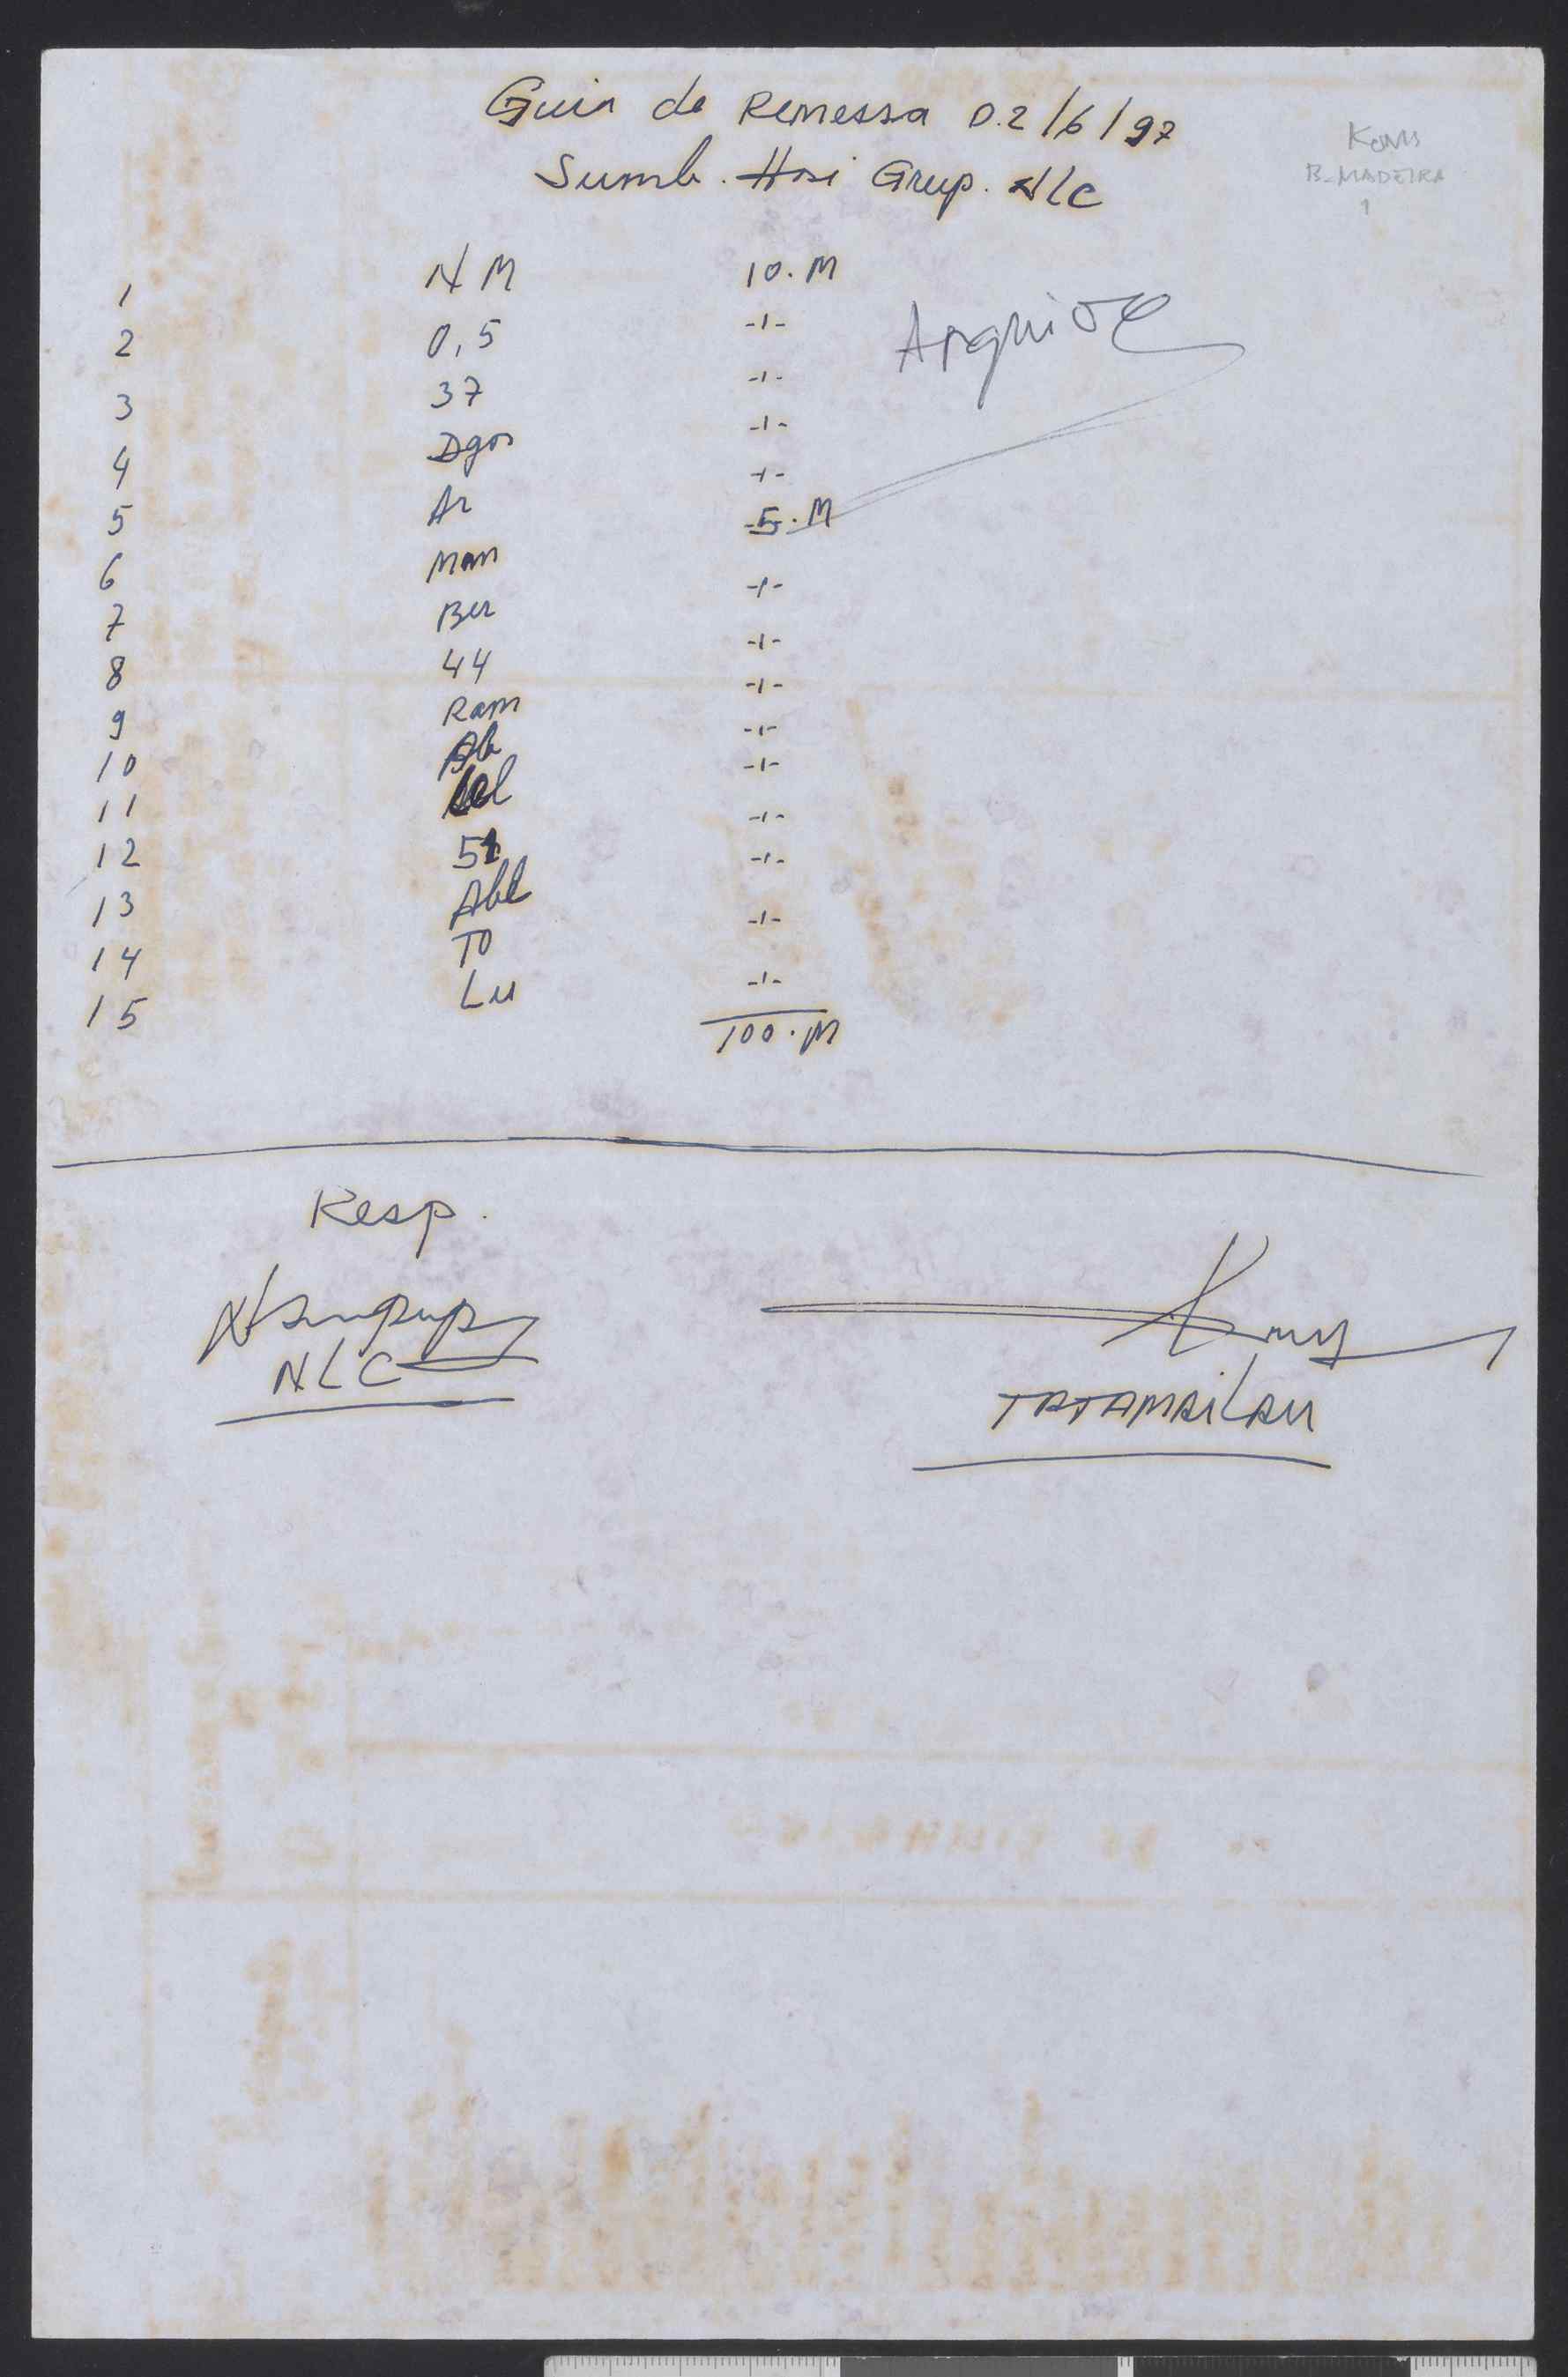 Guia de Remessa D.2/6/97
Sumb. Hosi Grup. NLC
Konis
B. MADEIRA
1
1 NM 10.M
2 0,5 -1-
3 37 -1-
4 Dgos -1-
5 Ar -1-
6 Man 5.M
7 Ber -1-
8 44 -1-
9 Ram -1-
10 Ab -1-
11 -1-
12 51 -1-
13 Abl -1-
14 TO -1-
15 Lu -1-
100.M
Arquive
Resp.
NLC
TATAMAILAU